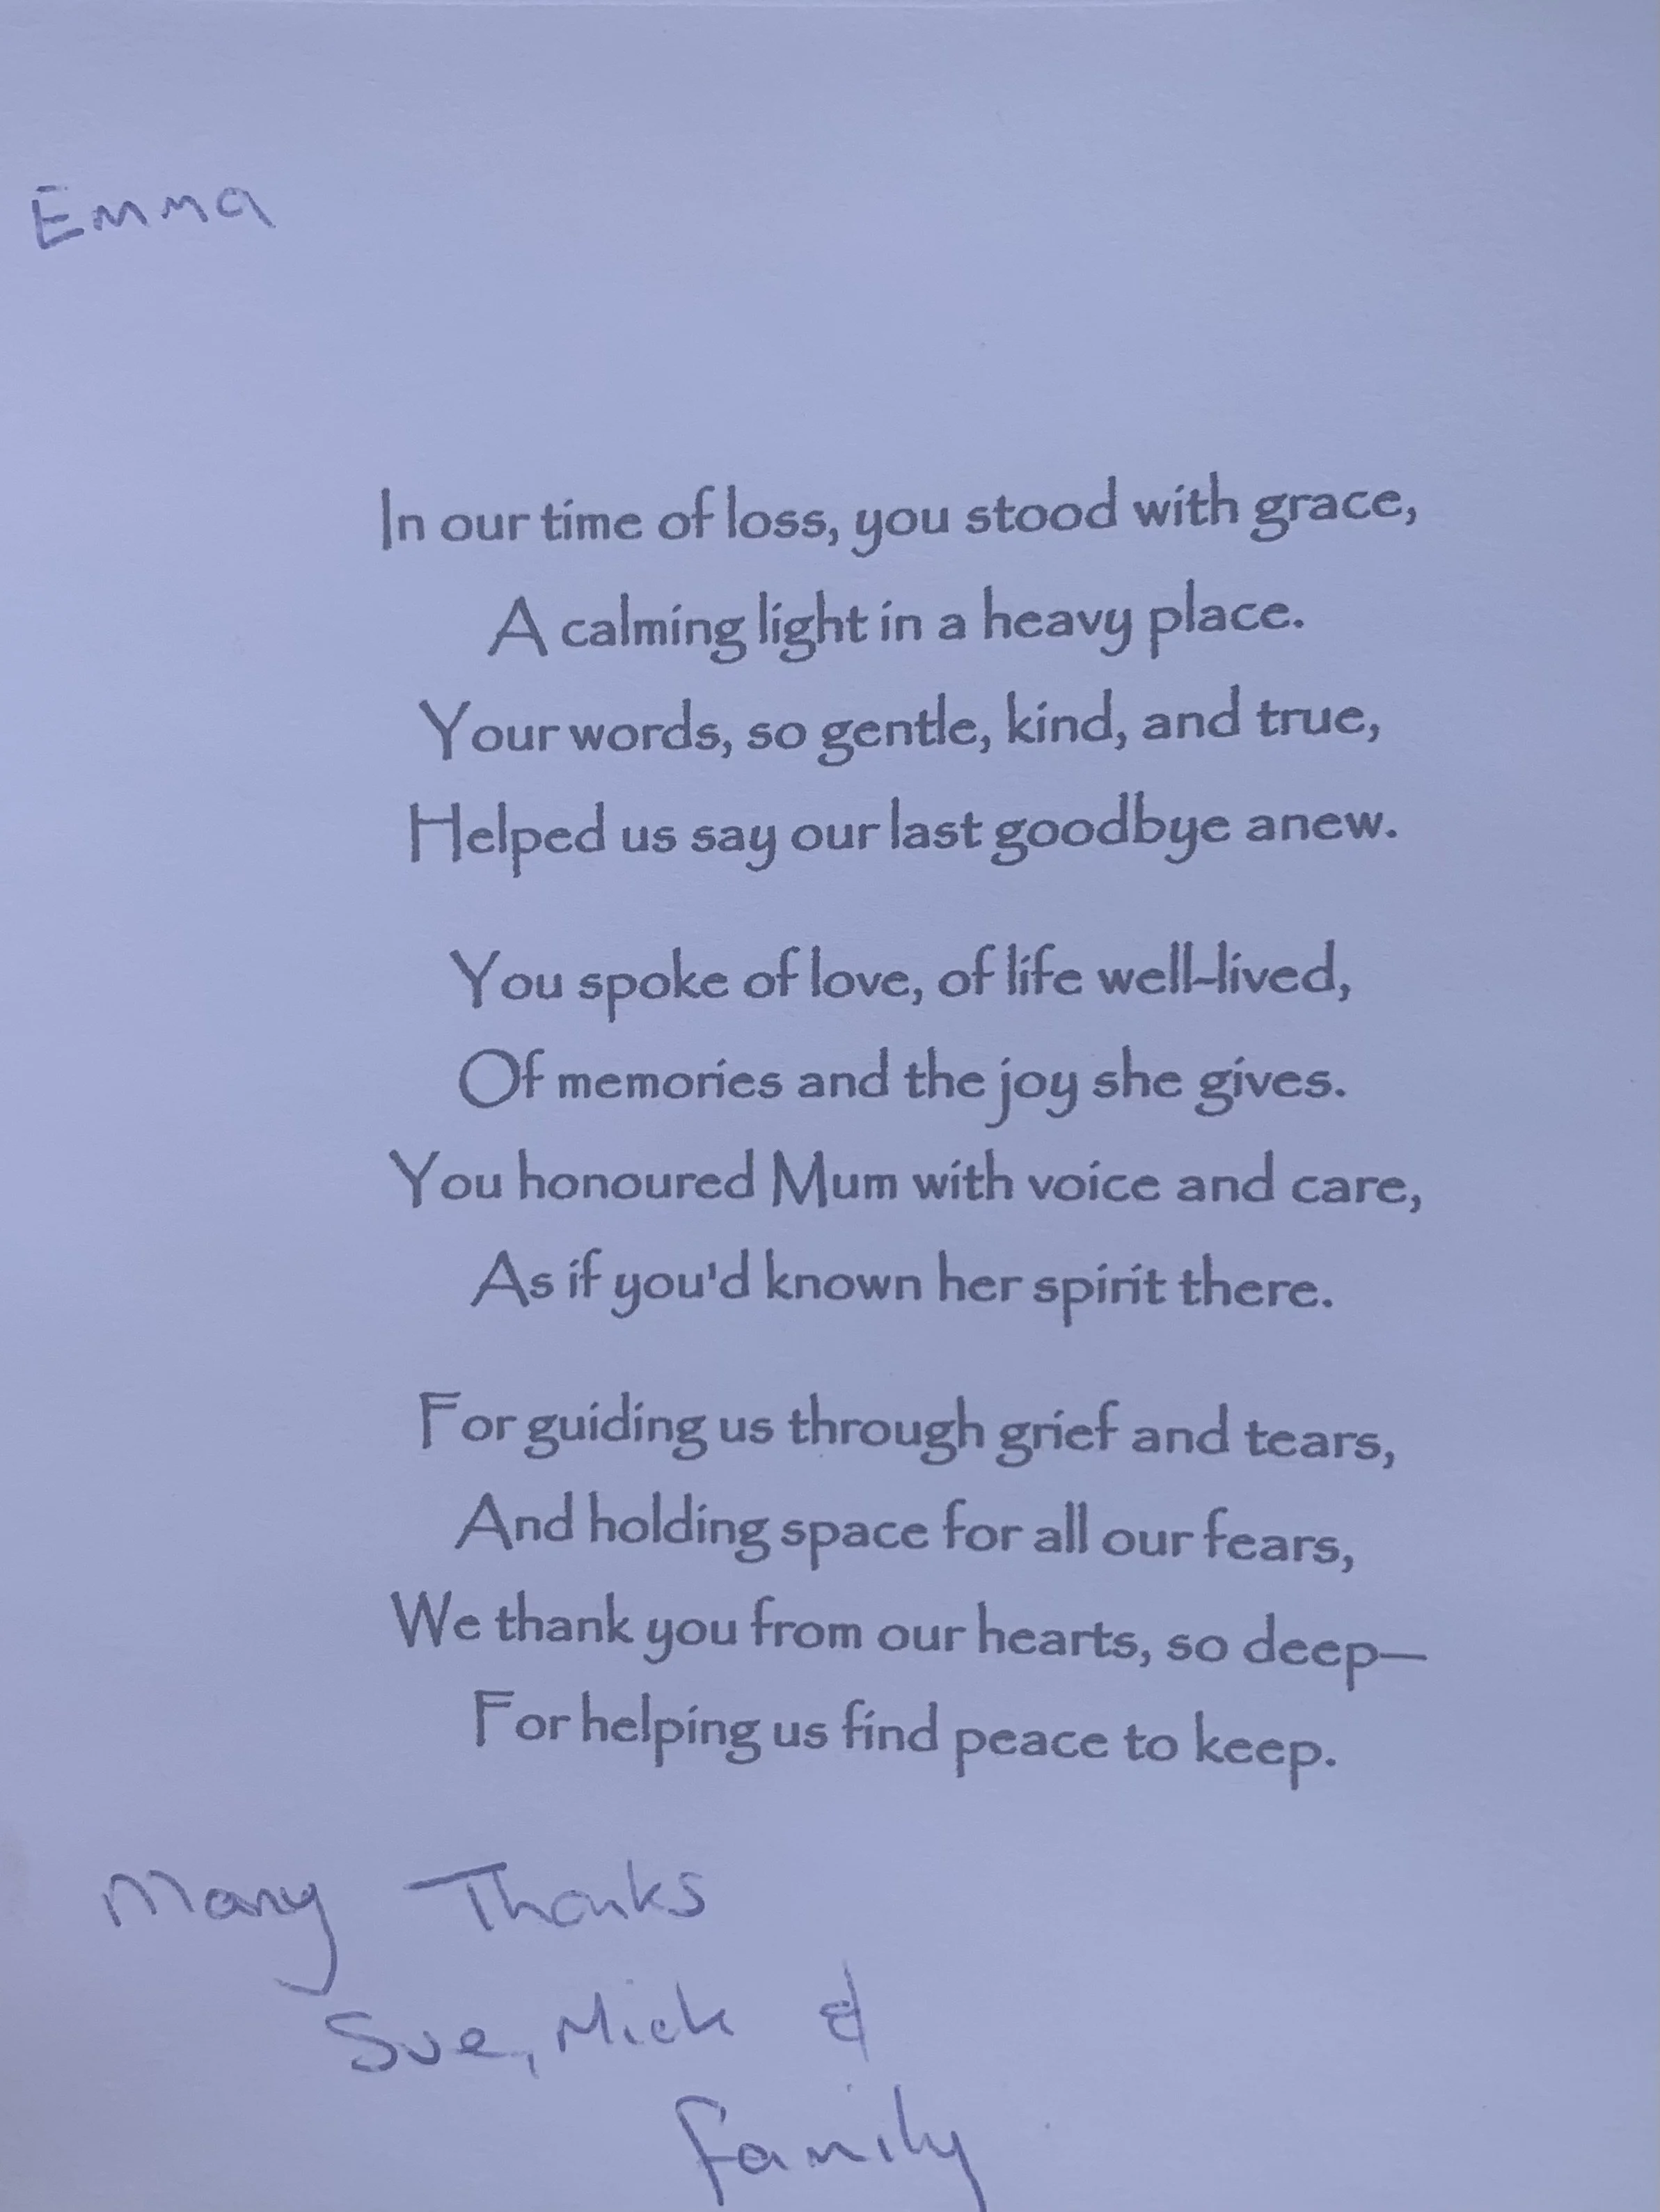 Emma
In our time of loss, you stood with grace,
A calming light in a heavy place.
Your words, so gentle, kind, and true,
Helped us say our last goodbye anew.
You spoke of love, of life well-lived,
Of memories and the joy she gives.
You honoured Mum with voice and care,
As if you'd known her spirit there.
For guiding us through grief and tears,
And holding space for all our fears,
We thank you from our hearts, so deep—
For helping us find peace to keep.
Many Thanks
Sue, Mick &
family